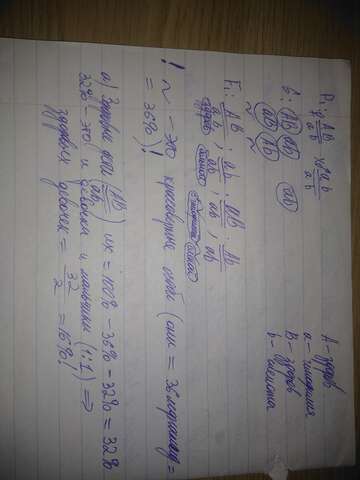 P: ♀ AB/ab × ♂ ab/ab
G: (AB) (ab) (ab)
(aB) (Ab)
A - здоров
a -
B - здоров
b -
F₁: AB/ab ; ab/ab ; aB/ab ; Ab/ab
здоров
! ~ - это кроссоверные особи (они = 36 морганид =
= 36%)!
а) Здоровые дети (AB/ab) их = 100% - 36% - 32% = 32%
32% - это и девочки и мальчики (1:1) =>
здоровых девочек = 32/2 = 16%!